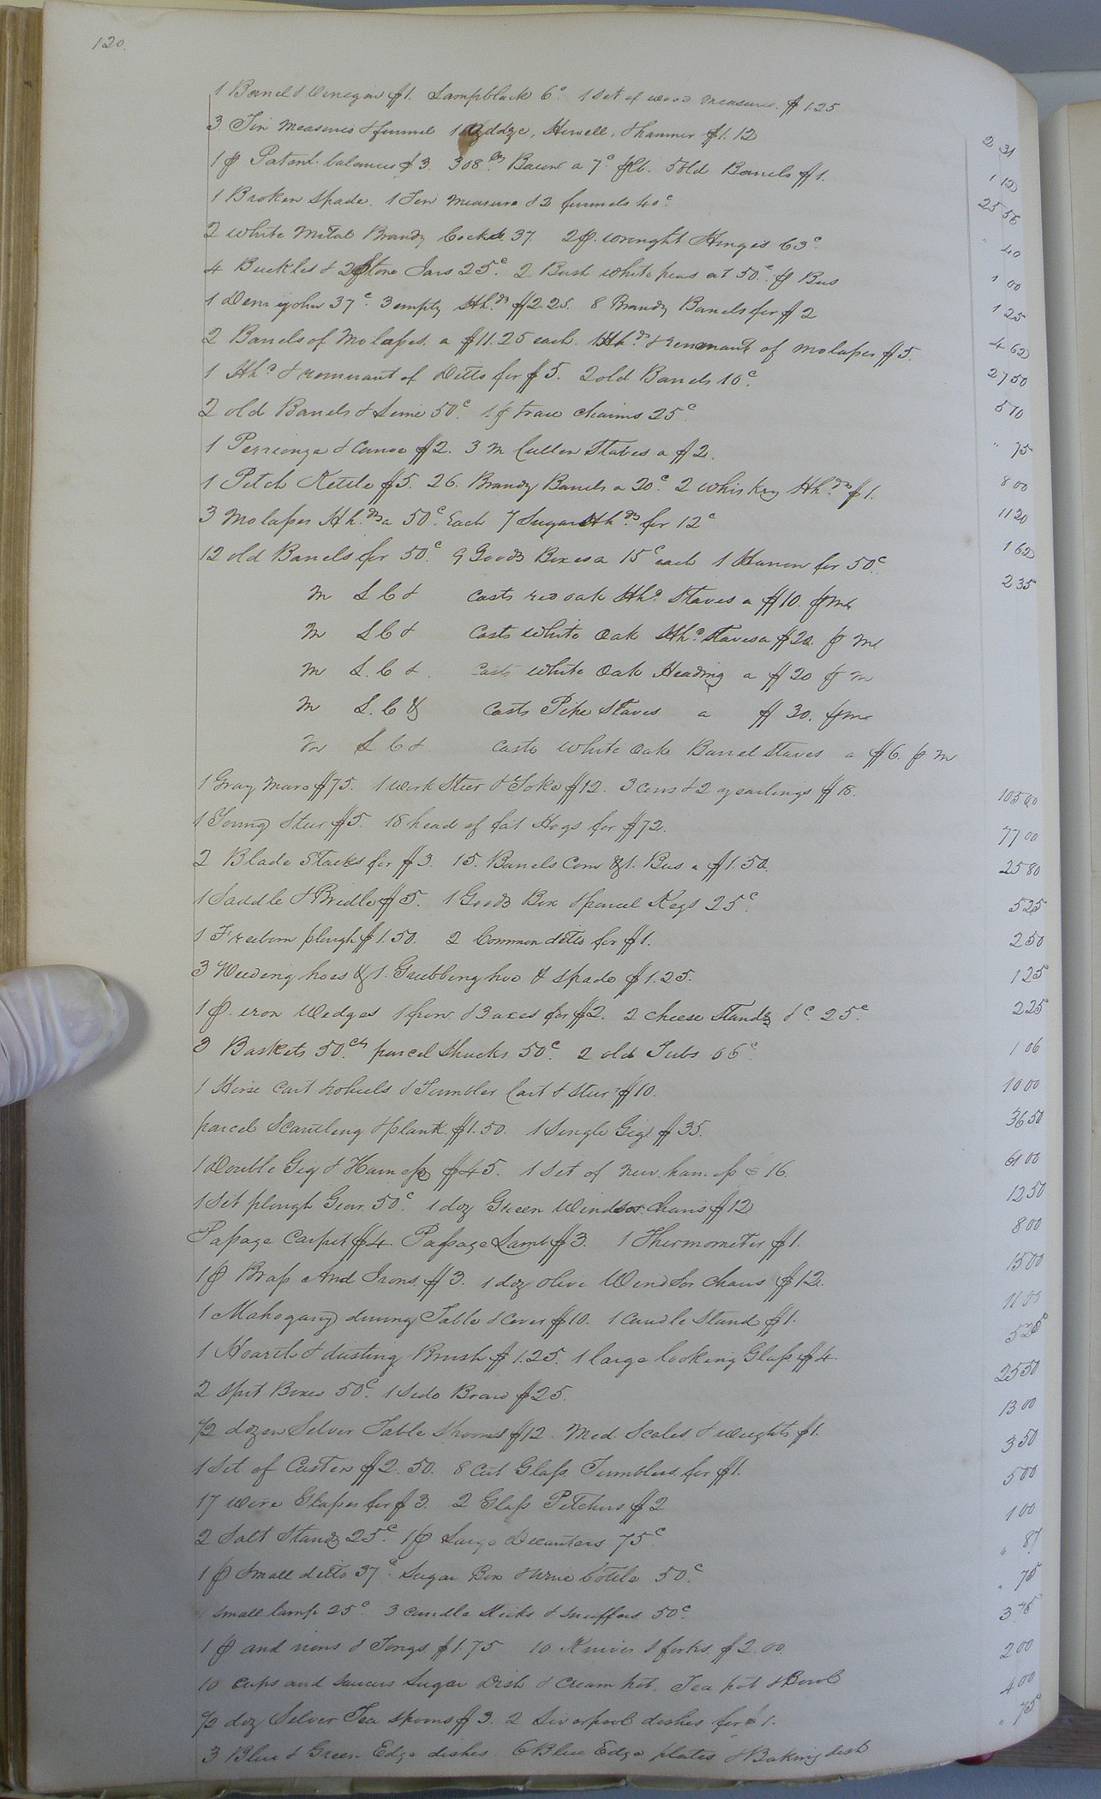 120.
1 Barrel & Vinegar $1. Lampblack 6c. 1 Set of wood measures. $1.25 2 31
3 Tin Measures & funnel 1 Adze, Howell, & hammer $1.12 1 12
1 p Patent balances $3. 308 lbs Bacon a 7c. plb. 5 old Barrels $1. 25 56
1 Broken Spade. 1 Tin Measure & 2 funnels 40c. " 40
2 White Metal Brandy Cocks 37 2 p. wrought Hinges 63c. 1 00
4 Buckles & 2 Stone Jars 25c. 2 Bush white peas at 50c. p Bus 1 25
1 Demijohn 37c. 3 empty Hhds $2.25. 8 Brandy Barrels for $2 4 62
2 Barrels of Molasses. a $11.25 each. 1 Hhd & remnant of molasses $5. 27 50
1 Hhd & remnant of Ditto for $5. 2 old Barrels 10c. 5 10
2 old Barrels & Lime 50c. 1 p trace chains 25c " 75
1 Perriouga & Canoe $2. 3 M Cullen Staves a $2. 8 00
1 Pitch Kettle $5. 26. Brandy Barrels a 20c. 2 Whiskey Hhds $1. 11 20
3 Molasses Hhds a 50c. Each 7 Sugar Hhds for 12c 1 62
12 old Barrels for 50c. 9 Goods Boxes a 15c each 1 Harrow for 50c. 2 35
M L C & casts red oak Hhd Staves a $10. p M
M L C & casts White Oak Hhd Staves a $20. p M
M L. C & casts white Oak Heading a $20 p M
M L. C & casts Pipe Staves a $30. p M
M L C & casts White Oak Barrel Staves a $6. p M
1 Gray Mare $75. 1 Work Steer & Yoke $12. 3 Cows & 2 yearlings $18. 105 00
1 Young Steer $5. 18 head of fat Hogs for $72. 77 00
2 Blade Stacks for $3. 15. Barrels Corn & 1. Bus a $1.50. 25 80
1 Saddle & Bridle $5. 1 Goods Box & parcel Kegs 25c. 5 25
1 Freeborn plough $1.50. 2 Common ditto for $1. 2 50
3 Weeding hoes & 1. Grubbing hoe & spade $1.25. 1 25
1 p. iron Wedges 1 frow & 3 axes for $2. 2 cheese Stands &c. 25c. 2 25
3 Baskets 50cts parcel Shucks 50c. 2 old Tubs 06c. 1 06
1 Horse Cart wheels & Tumbler Cart & Steer $10. 10 00
parcel Scantling & plank $1.50. 1 Single Gig $35. 36 50
1 Double Gig & Harness $45. 1 Set of new harness 16. 61 00
1 Set plough Gear. 50c. 1 doz Green Windsor Chairs $12 12 50
Passage Carpet $4. Passage Lamp $3. 1 Thermometer $1. 8 00
1 p Brass And Irons. $3. 1 doz olive Windsor Chairs $12. 15 00
1 Mahogany dining Table & Cover $10. 1 Candle Stand $1. 11 00
1 Hearth & dusting Brush $1.25. 1 large looking Glass $4. 5 25
2 Spit Boxes 50c. 1 Side Board $25. 25 50
1/2 dozen Silver Table Spoons $12. Med Scales & weights $1. 13 00
1 Set of Castors $2.50. 8 Cut Glass Tumblers for $1. 3 50
17 Wine Glasses for $3. 2 Glass Pitchers $2 5 00
2 Salt Stands 25c. 1 p Large Decanters 75c. 1 00
1 p Small ditto 37c. Sugar Box & Wine bottle 50c. " 87
1 small lamp 25c. 3 candle Sticks & snuffers 50c. " 75
1 p and irons & Tongs $1.75 10 Knives & forks $2.00. 3 75
10 Cups and Saucers Sugar Dish & Cream pot. Tea pot & Bowl 2 00
1/2 doz Silver Tea Spoons $3. 2 Liverpool dishes for $1. 4 00
3 Blue & Green Edge dishes. 6 Blue Edge plates & Baking dish " 75